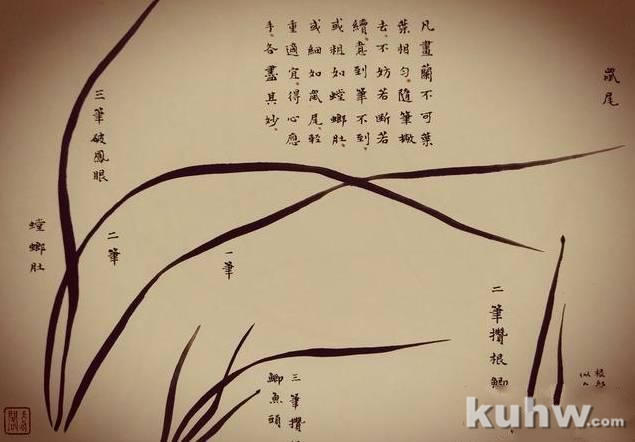 凡畫蘭不可葉
葉相勻隨筆撇
去不妨若斷若
續意到筆不到
或粗如螳螂肚
或細如鼠尾輕
重適宜得心應
手各盡其妙
鼠尾
三筆破鳳眼
螳螂肚
二筆
一筆
二筆攢根鯽
三筆攢
鯽魚頭
kuhw.com